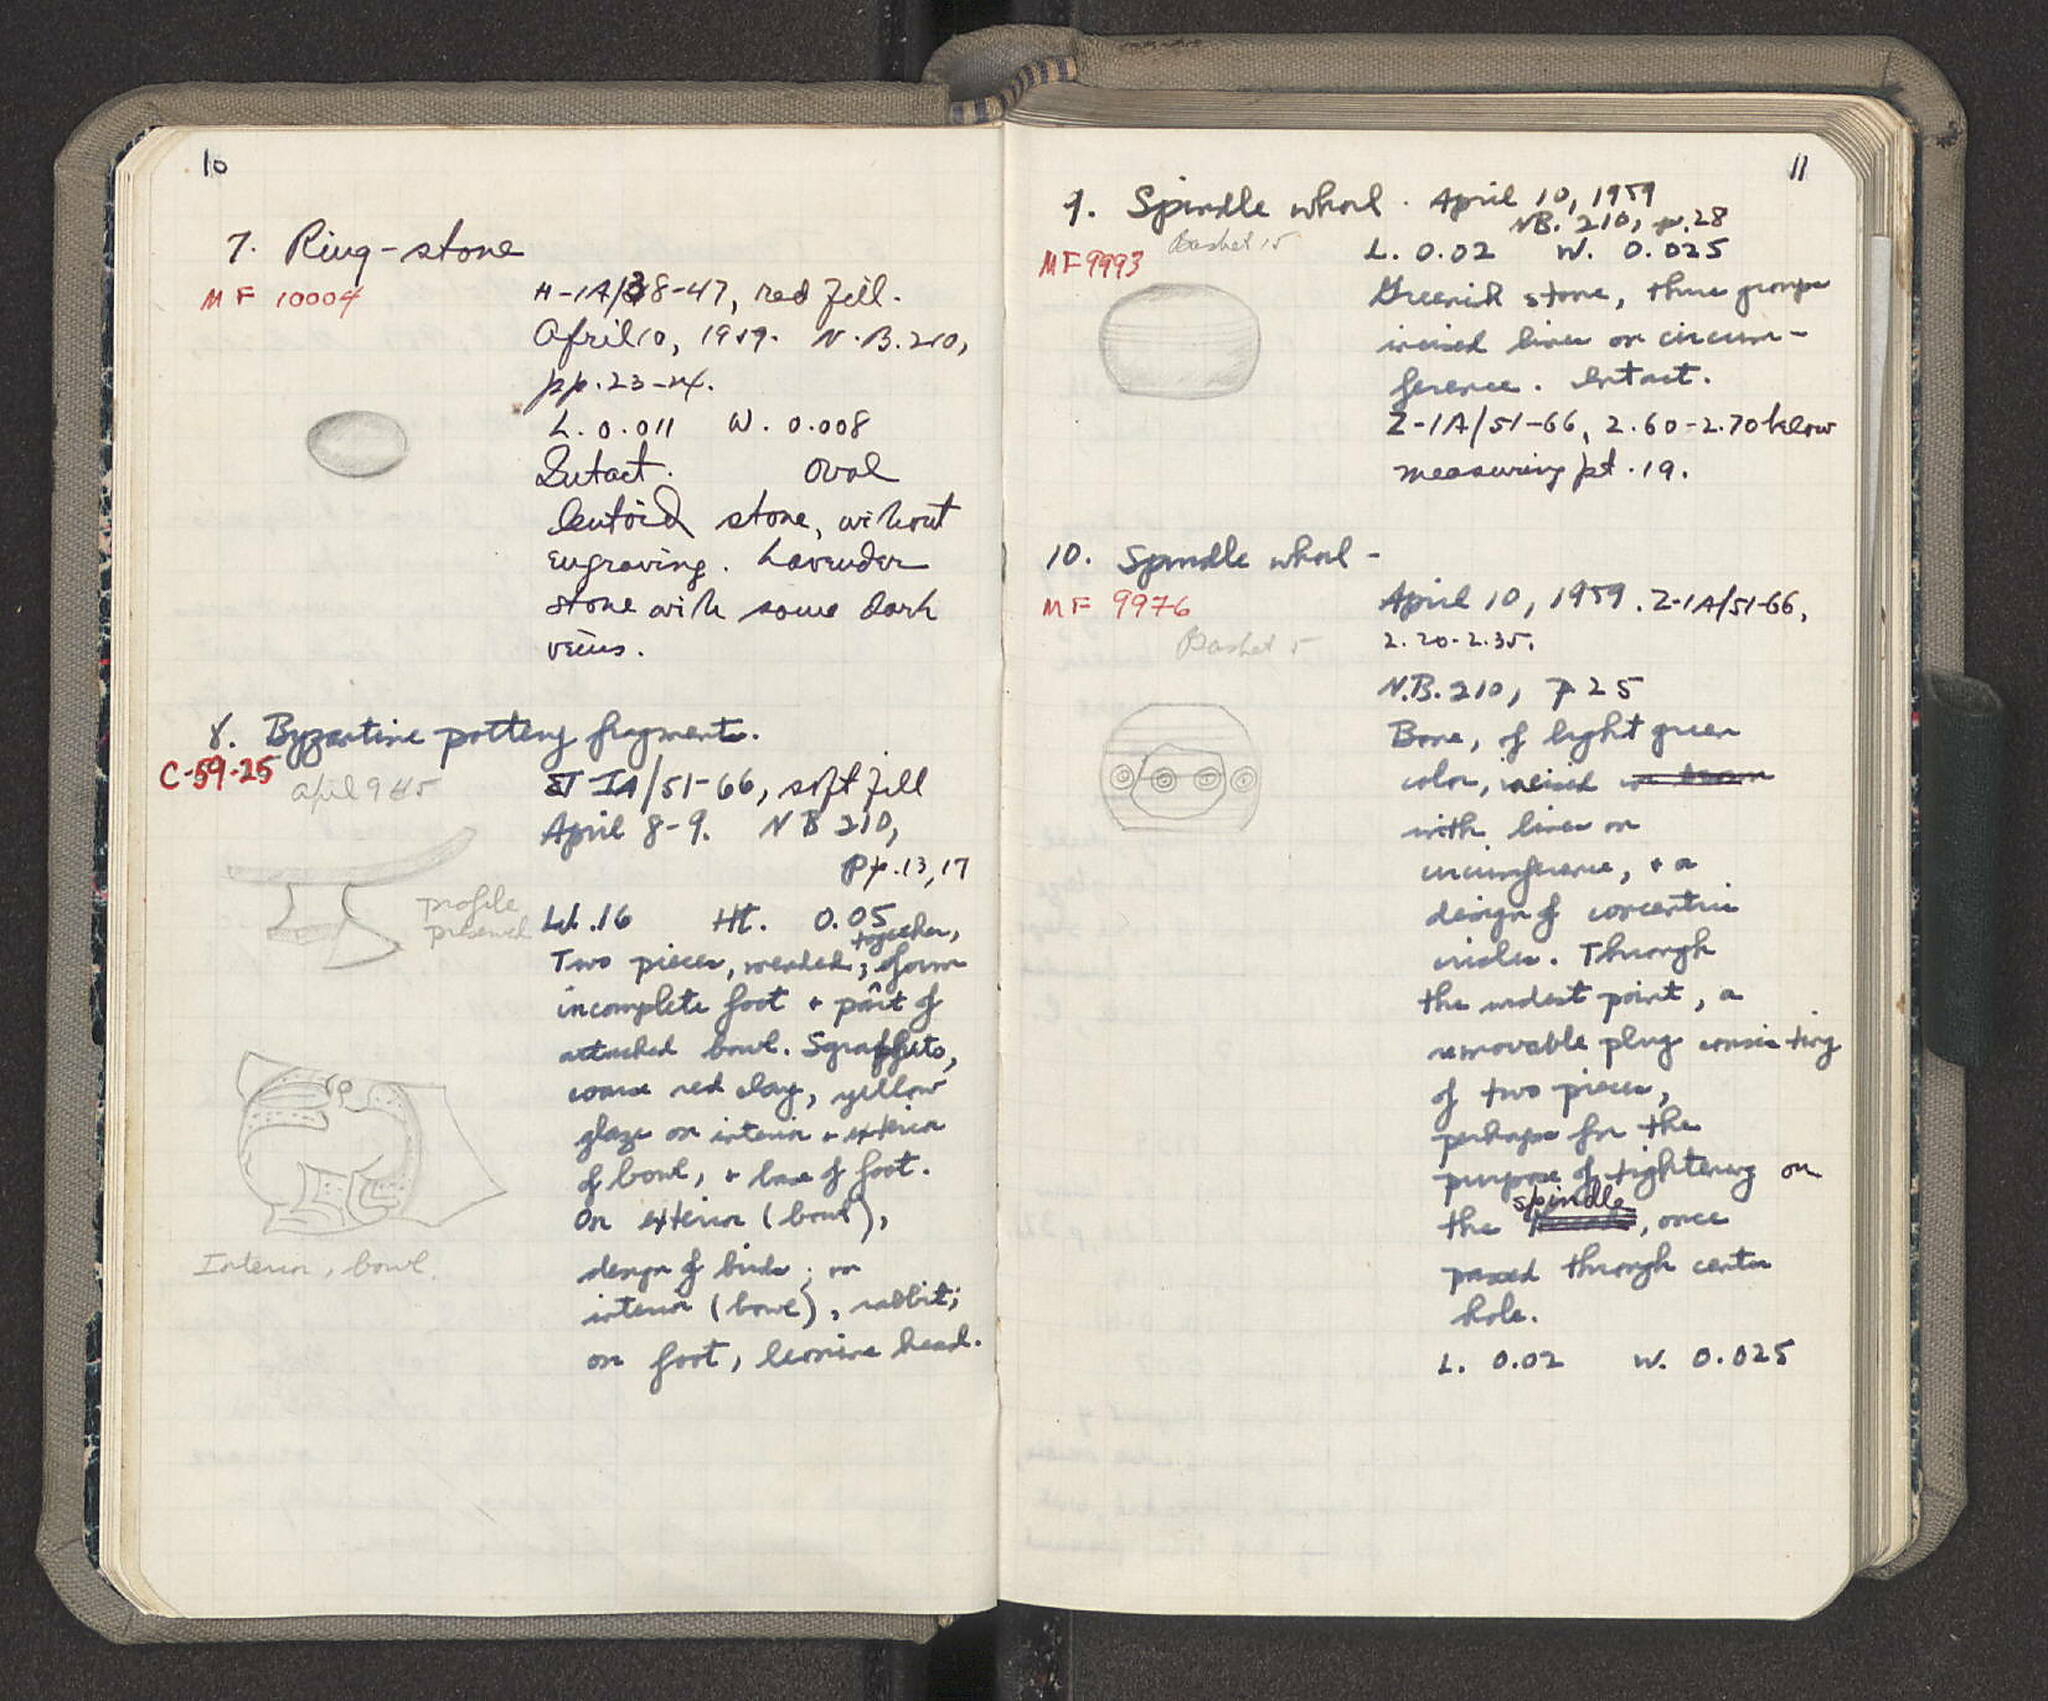 10
7. Ring-stone
MF 10004
H-1A/38-47, red fill.
April 10, 1959. N.B. 210,
pp. 23-24.
L. 0.011 W. 0.008
Intact. Oval
lentoid stone, without
engraving. Lavender
stone with some dark
veins.
8. Byzantine pottery fragment.
C-59-25
April 9
IA/51-66, soft fill
April 8-9. NB 210,
pp. 13, 17
.16 Ht. 0.05
together,
Two pieces, mended, form
incomplete foot + part of
attached bowl. Sgraffito,
coarse red clay, yellow
glaze on interior + exterior
of bowl, + base of foot.
On exterior (bowl),
design of birds; on
interior (bowl), rabbit;
on foot, leonine head.
profile
preserved
Interior, bowl.
11
9. Spindle whorl. April 10, 1959
NB. 210, p. 28
MF 9993
Basket 15
L. 0.02 W. 0.025
Greenish stone, three groups
incised lines on circum-
ference. Intact.
Z-1A/51-66, 2.60-2.70 below
measuring pt. 19.
10. Spindle whorl -
MF 9976
Basket 5
April 10, 1959. Z-1A/51-66,
2.20-2.35.
N.B. 210, p 25
Bone, of light green
color, incised
with lines on
circumference, + a
design of concentric
circles. Through
the widest point, a
removable plug consisting
of two pieces,
perhaps for the
purpose of tightening on
spindle
the , once
passed through center
hole.
L. 0.02 W. 0.025